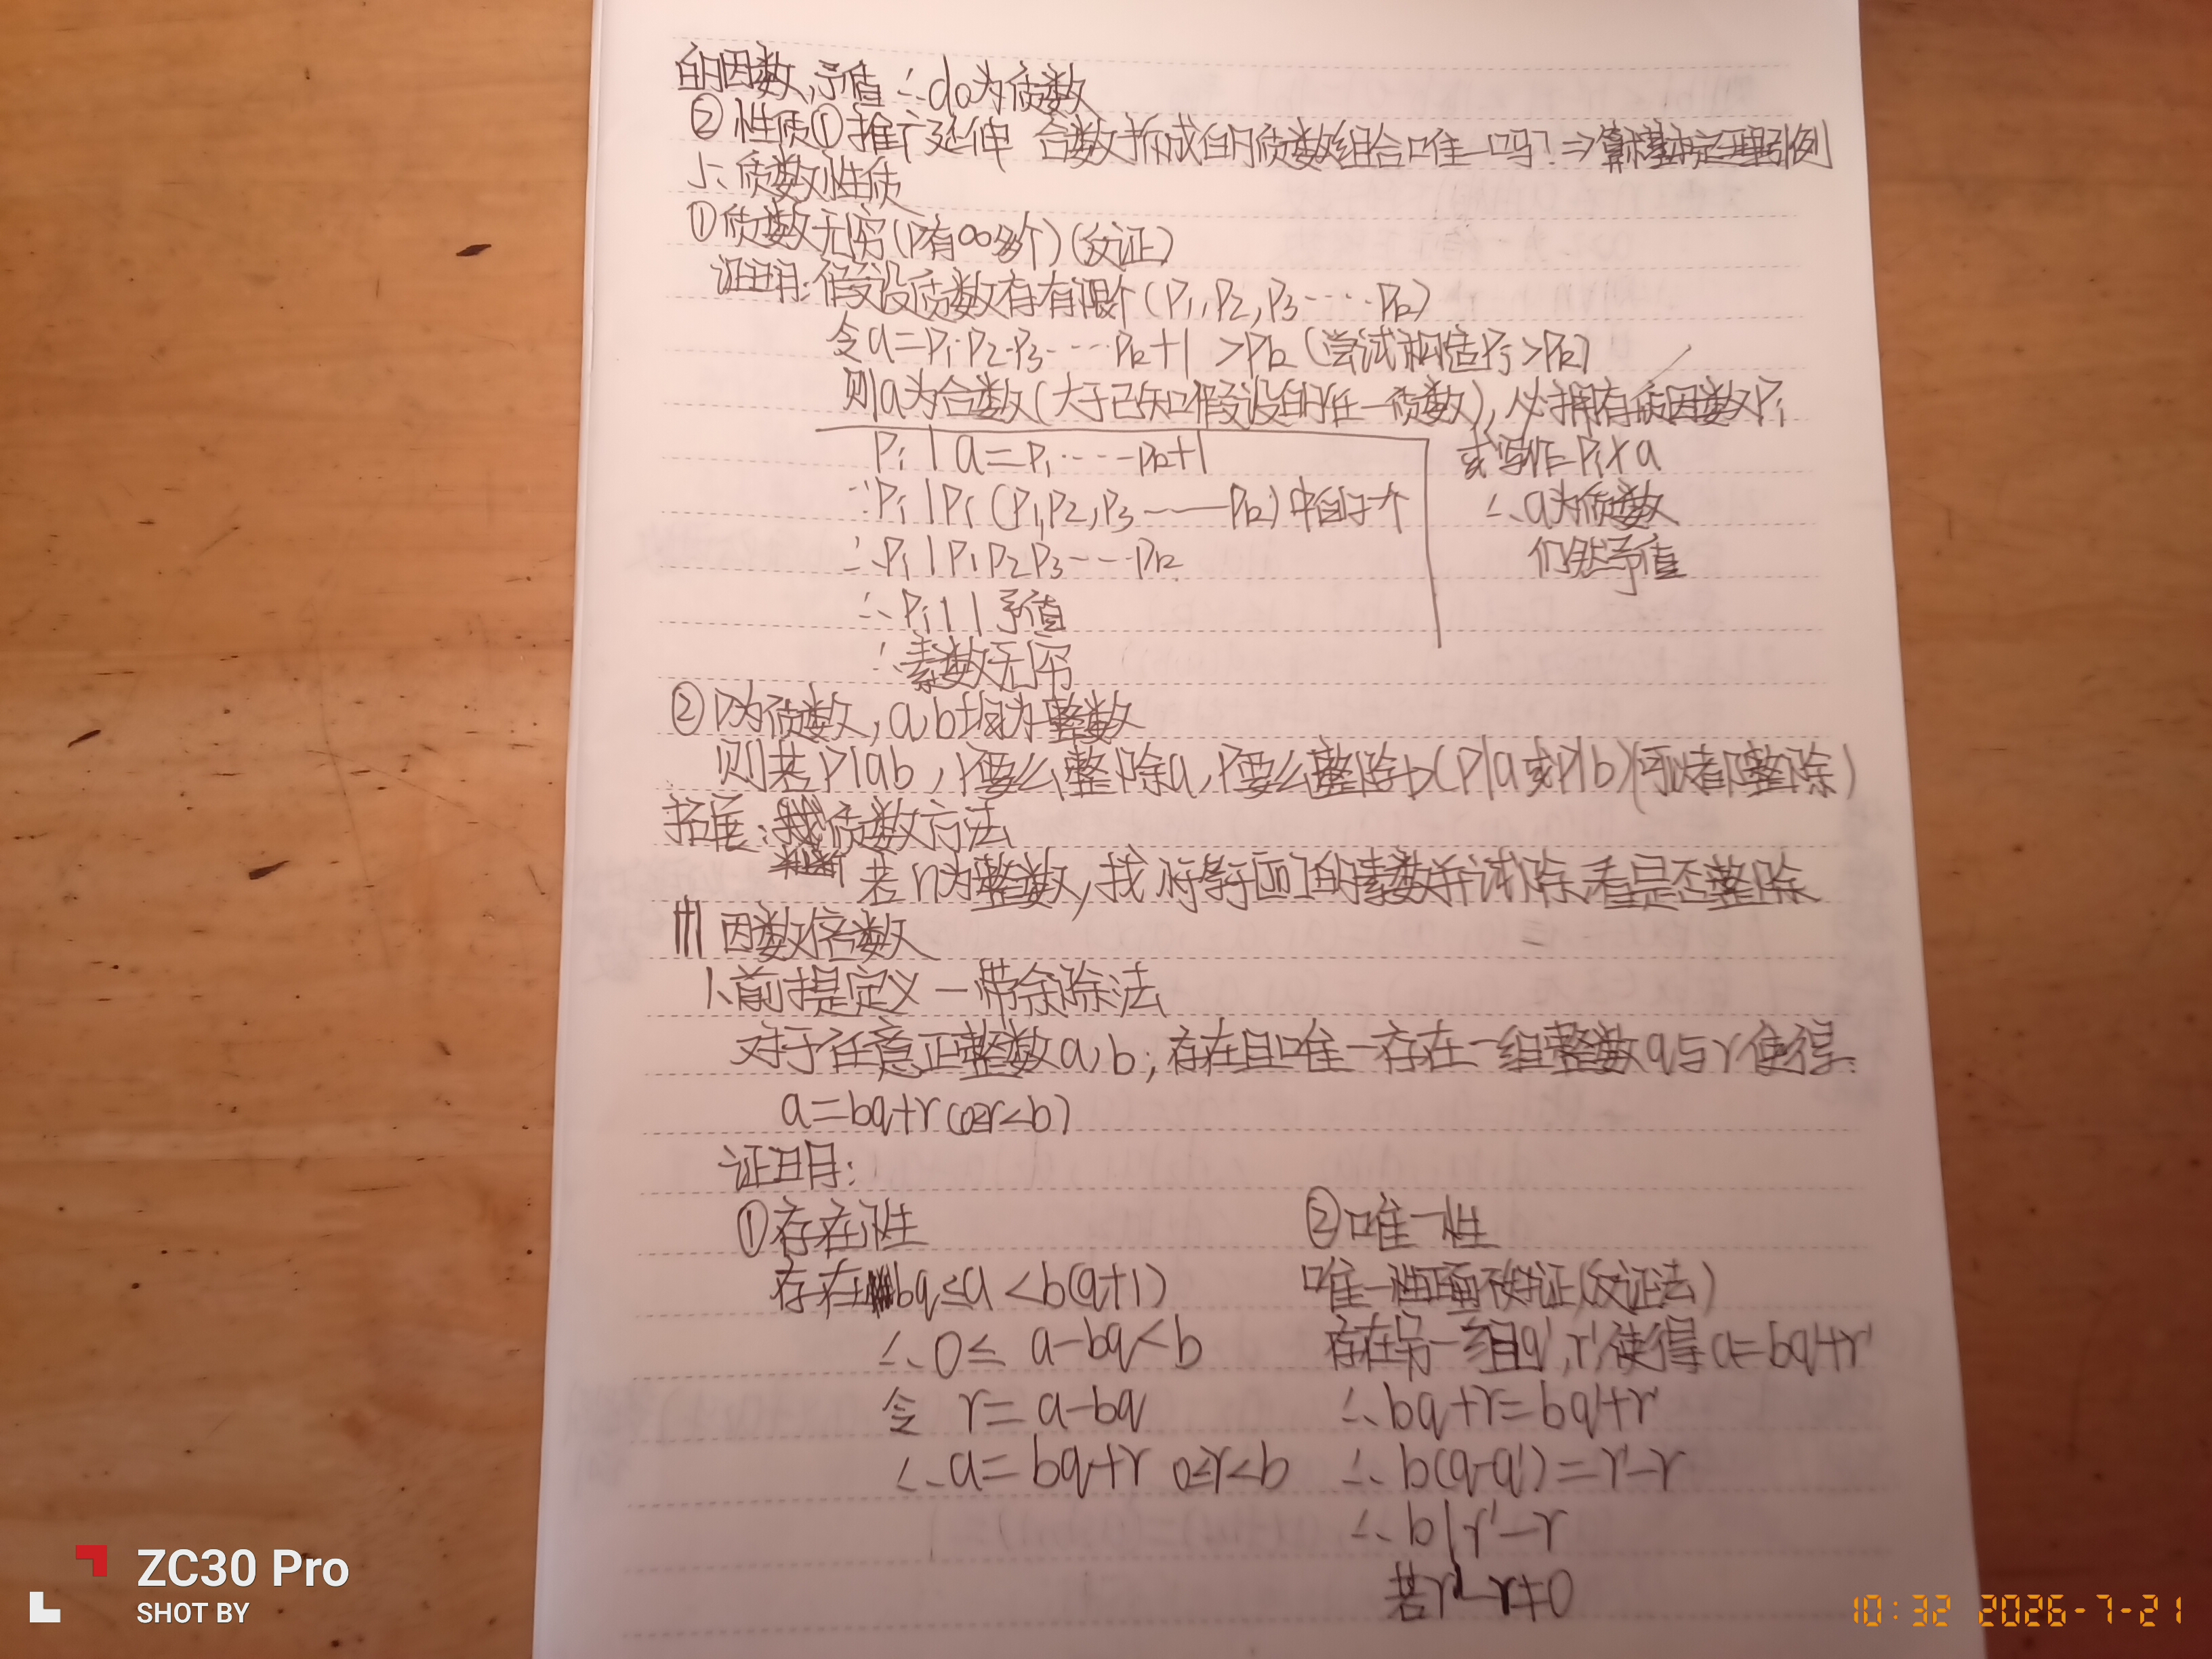 的因数,矛盾 ∴d₀为质数
② 性质①推广延伸 合数拆成的质数组合唯一吗?⇒算术基本定理引例
质数性质
①质数无穷(P有∞多个)(反证)
证明:假设质数存有限个(P₁,P₂,P₃-----Pₖ)
令a=P₁·P₂·P₃-----Pₖ+1 >Pₖ(尝试构造Pⱼ>Pₖ)
则a为合数(大于已知假设的任一质数),必拥有质因数Pᵢ
Pᵢ|a=P₁-----Pₖ+1
∵Pᵢ|Pᵢ(P₁,P₂,P₃-----Pₖ)中的一个
∴Pᵢ|P₁P₂P₃-----Pₖ
∴Pᵢ|1 矛盾
∴素数无穷
或写作Pᵢ∤a
∴a为质数
仍然矛盾
②P为质数,a,b均为整数
则若P|ab,P要么整除a,P要么整除b(P|a或P|b)(可以都整除)
拓展:质数方法
判断
若n为整数,找的素数并试除看是否整除
III 因数倍数
1、前提定义-带余除法
对于任意正整数a,b;存在且唯一存在一组整数q与r使得:
a=bq+r(0≤r<b)
证明:
①存在性
存在bq≤a<b(q+1)
∴0≤a-bq<b
令 r=a-bq
∴a=bq+r 0≤r<b
②唯一性
唯一性正面不好证(反证法)
存在另一组q',r',使得a=bq'+r'
∴bq+r=bq'+r'
∴b(q-q')=r'-r
∴b|r'-r
若r'-r≠0
ZC30 Pro
SHOT BY
10:32 2026-7-21